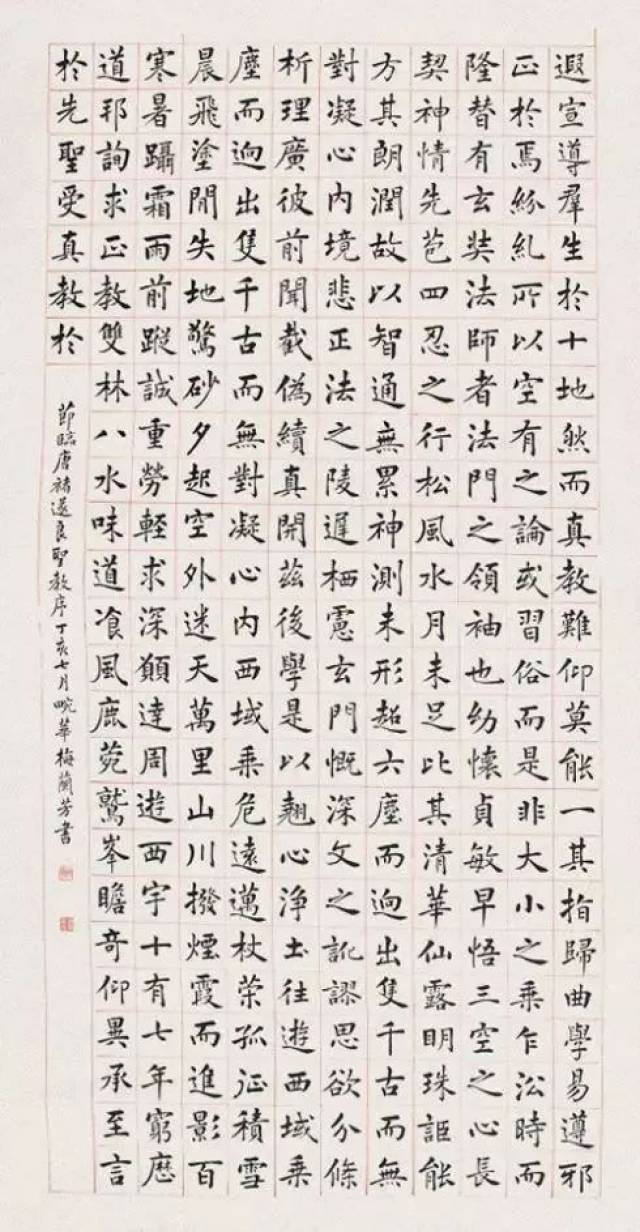 遐宣導羣生於十地然而真教難仰莫能一其指歸曲學易遵邪
正於焉紛糺所以空有之論或習俗而是非大小之乘乍沿時而
隆替有玄奘法師者法門之領袖也幼懷貞敏早悟三空之心長
契神情先苞四忍之行松風水月未足比其清華仙露明珠詎能
方其朗潤故以智通無累神測未形超六塵而逈出隻千古而無
對凝心內境悲正法之陵遲栖慮玄門慨深文之訛謬思欲分條
析理廣彼前聞截偽續真開茲後學是以翹心淨土往遊西域乘
塵而逈出隻千古而無對凝心內西域乘危遠邁杖策孤征積雪
晨飛塗閒失地驚砂夕起空外迷天萬里山川撥煙霞而進影百
寒暑躡霜雨前蹤誠重勞輕求深願達周遊西宇十有七年窮歷
道邦詢求正教雙林八水味道飡風鹿菀鷲峯瞻奇仰異承至言
於先聖受真教於
節臨唐褚遂良聖教序丁亥七月畹華梅蘭芳書